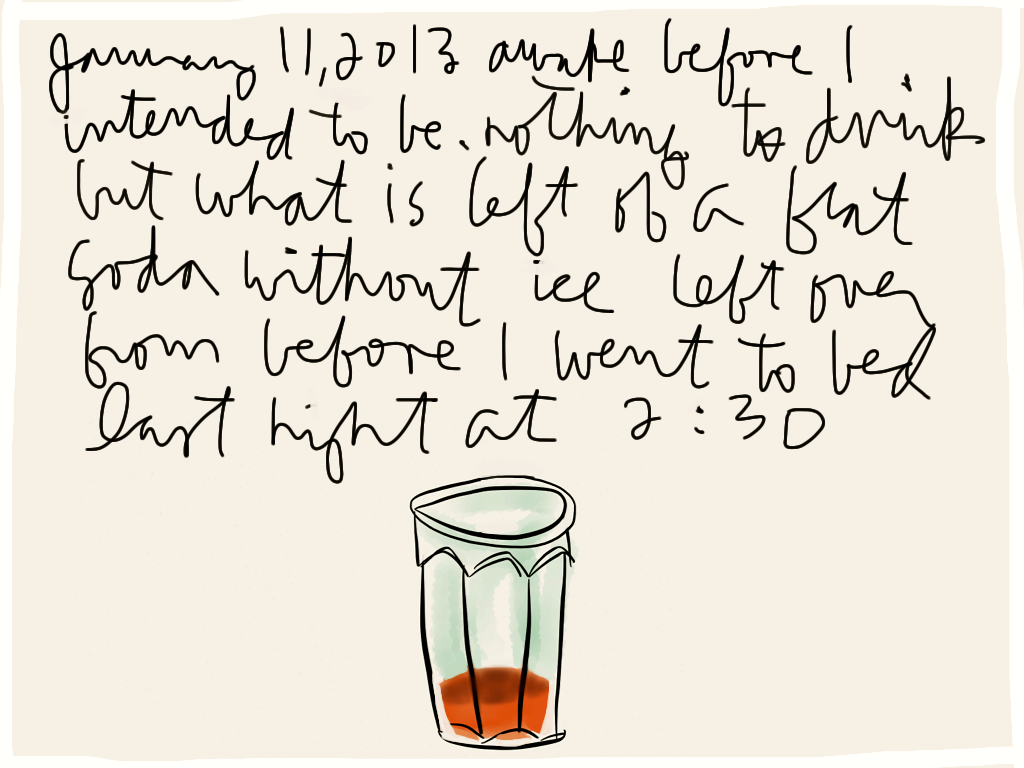 January 11, 2013 awake before I
intended to be. nothing to drink
but what is left of a flat
soda without ice left over
from before I went to bed
last night at 2:30